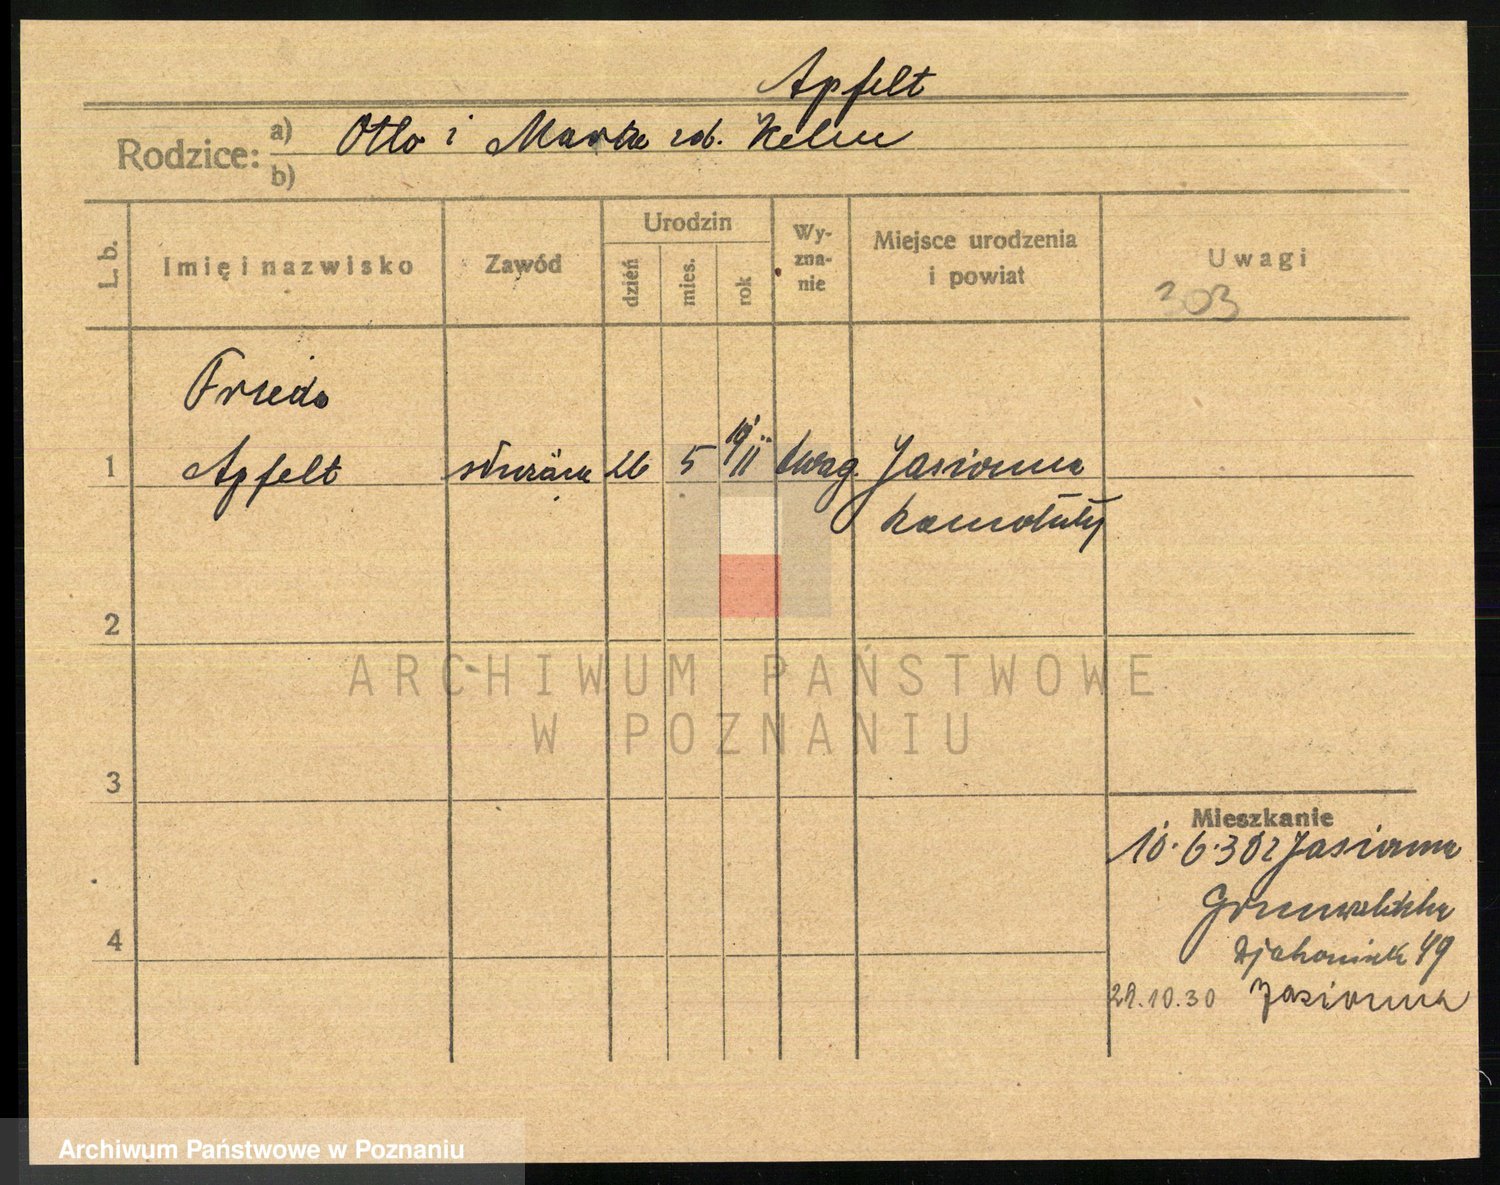 Apfelt
Rodzice: a) Otto i Marta rod. Kelm
b)
L. b. Imię i nazwisko Zawód Urodzin dzień mies. rok Wyznanie Miejsce urodzenia i powiat Uwagi
303
Frieda
1 Apfelt służąca 26 5 1911 ewag. Jasionna
Szamotuły
2
3
4
Mieszkanie
10.6.30 z Jasionna
Grunwaldzka
49
29.10.30 Jasionna
ARCHIWUM PAŃSTWOWE
W POZNANIU
Archiwum Państwowe w Poznaniu